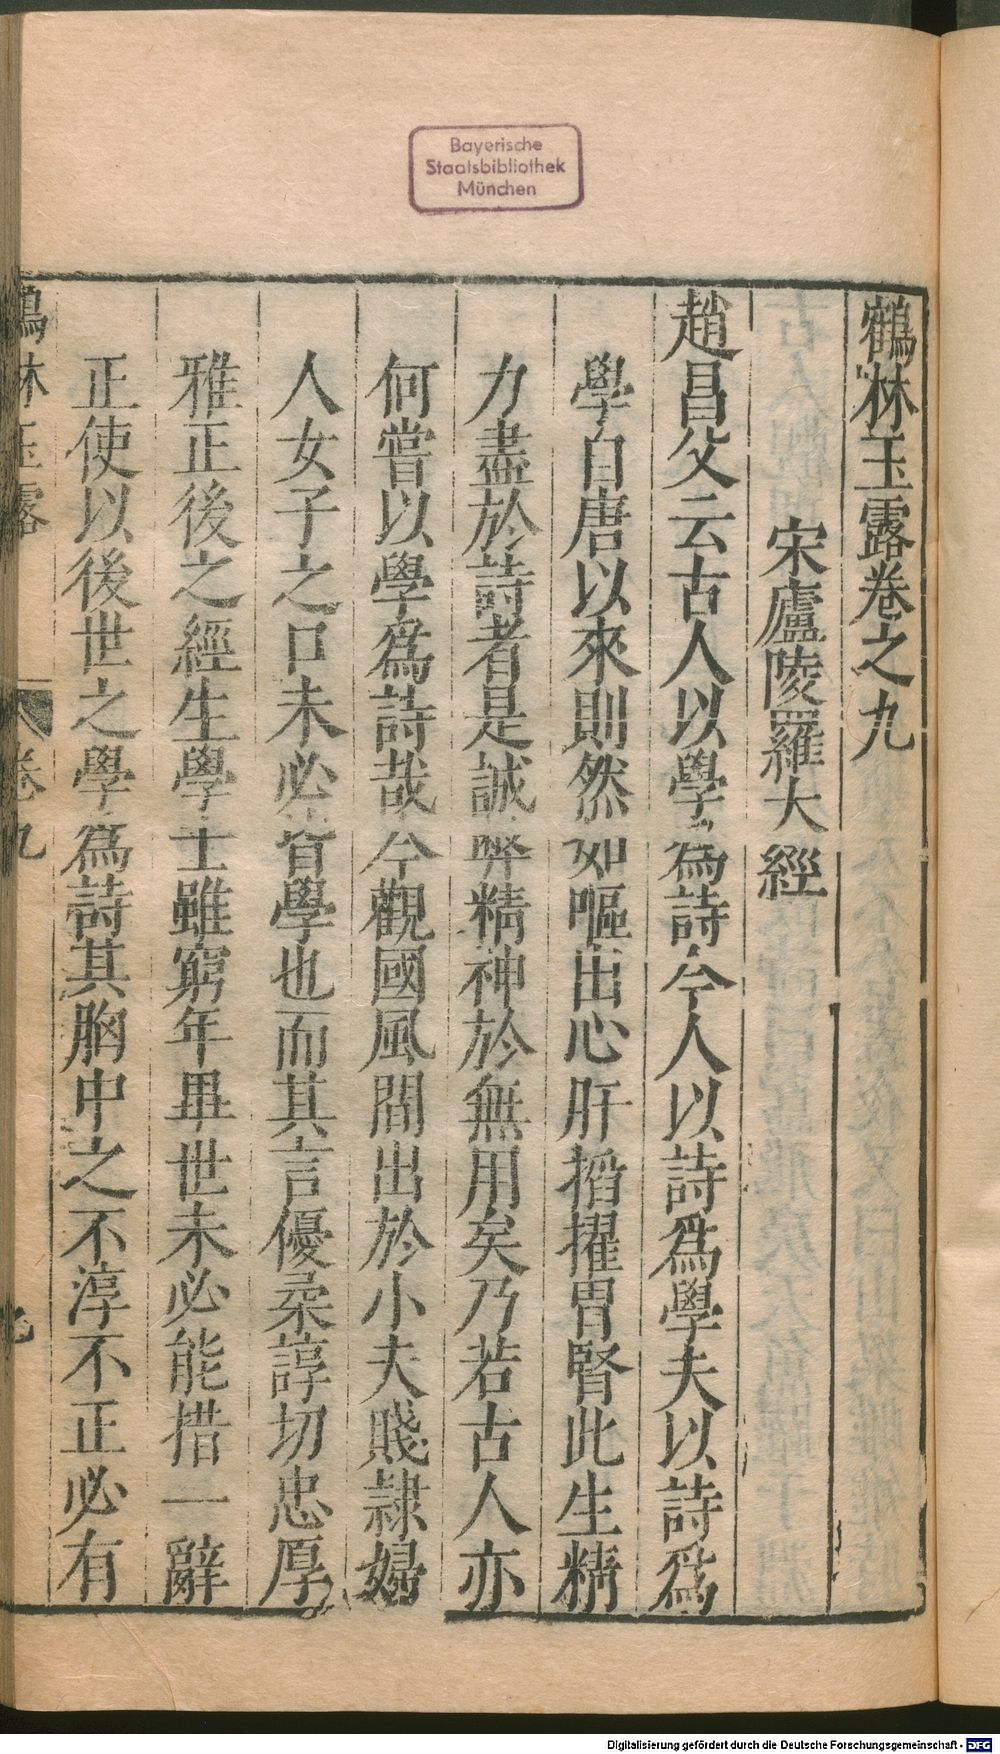 Bayerische
Staatsbibliothek
München
鶴林玉露卷之九
宋廬陵羅大經
趙昌父云古人以學爲詩今人以詩爲學夫以詩爲
學自唐以來則然如嘔出心肝搯擢胃腎此生精
力盡於詩者是誠弊精神於無用矣乃若古人亦
何嘗以學爲詩哉今觀國風間出於小夫賤隸婦
人女子之口未必皆學也而其言優柔諄切忠厚
雅正後之經生學士雖窮年畢世未必能措一辭
正使以後世之學爲詩其胸中之不淳不正必有
鶴林玉露
卷九
Digitalisierung gefördert durch die Deutsche Forschungsgemeinschaft - DFG